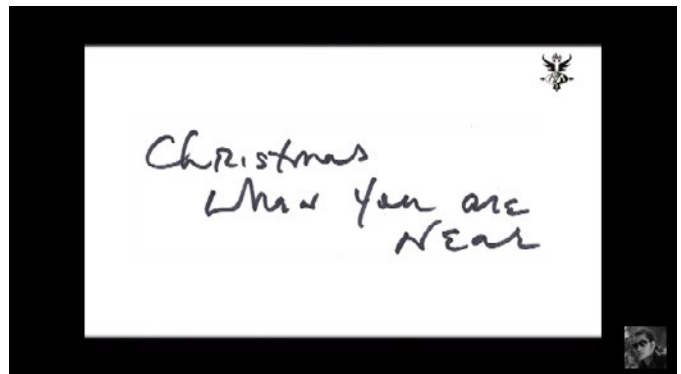 Christmas
When you are
Near